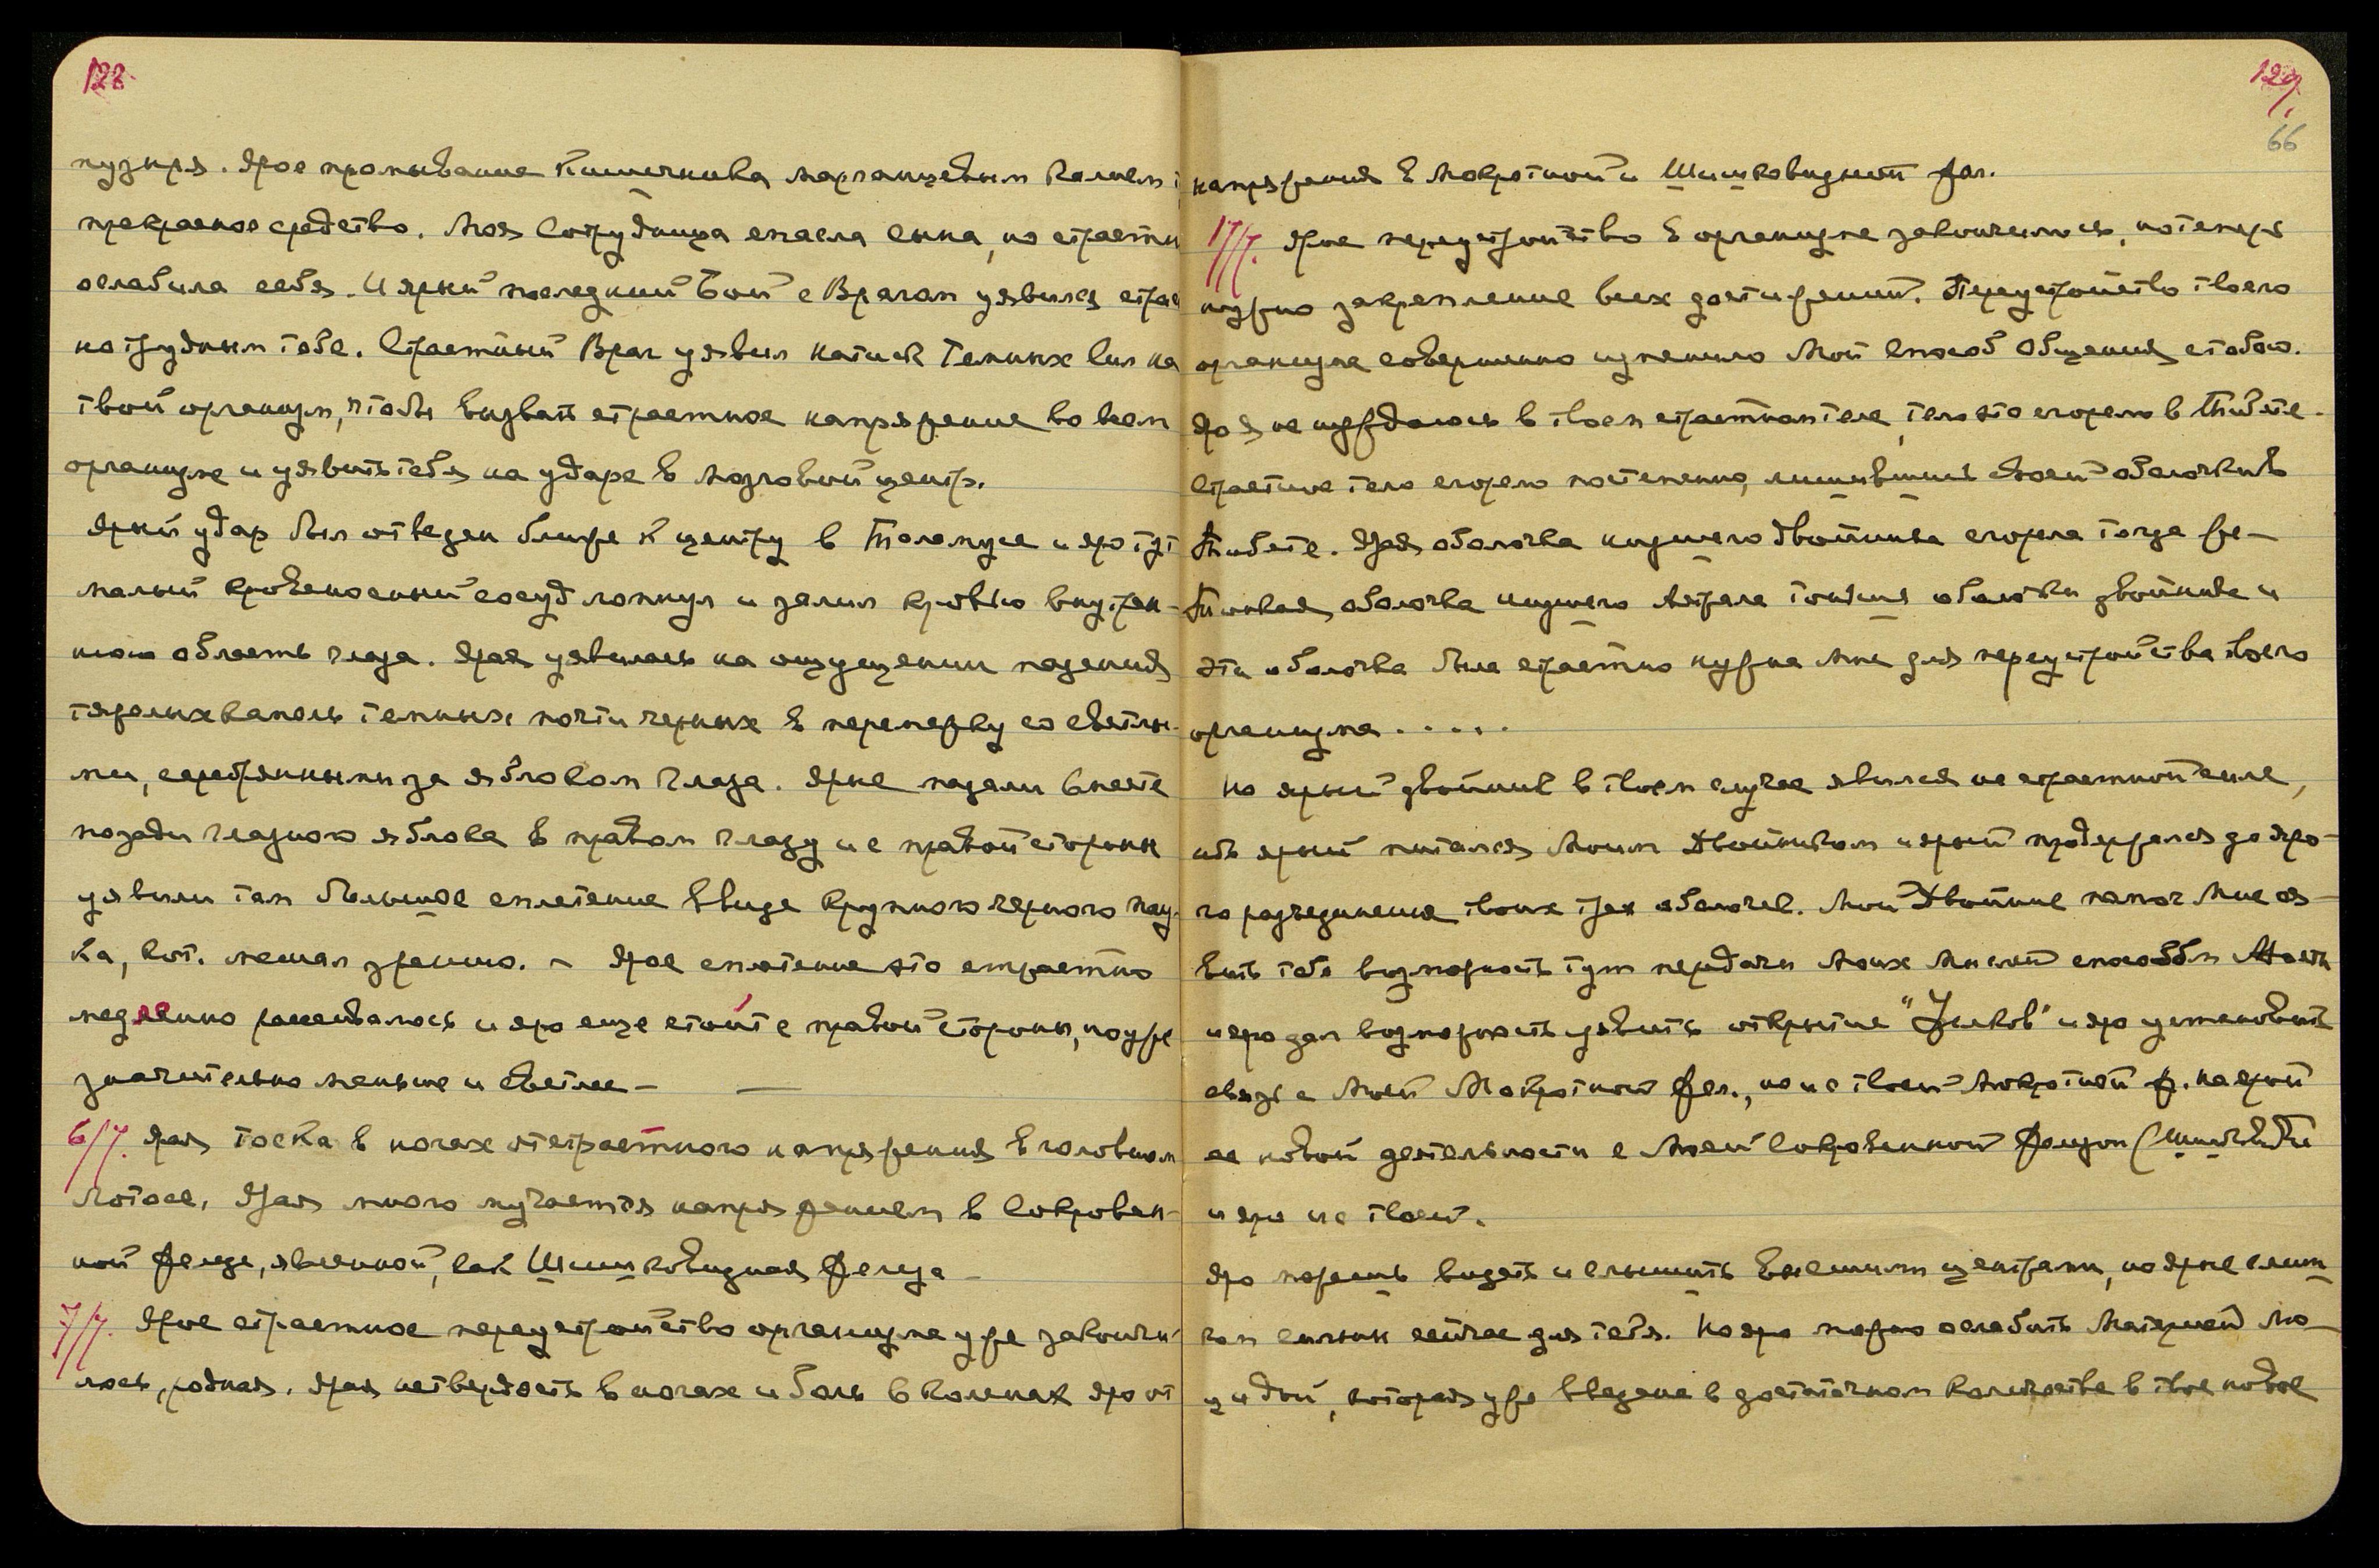 128.
пузыря. Ярое промывание Кишечника марганцевым Калием
прекрасное средство. Моя Сотрудница спасла сына, но страстно
ослабила себя. И ярый последний Бой с Врагом уявился страст
но трудным тебе. Страстный Враг уявил натиск Темных Сил на
твой организм, чтобы вызвать страстное напряжение во всем
организме и уявить тебя на ударе в мозговой центр.
Ярый удар был отведен ближе к центру в Таламусе и яро тут
малый кровеносный сосуд лопнул и залил кровью внутрен-
нюю область глаза. Ярая уявилась на ощущении падения
тяжелых капель темных почти черных в перемежку со светлы-
ми, серебряными за яблоком Глаза. Ярые падали вместе
позади глазного яблока в правом глазу и с правой стороны
уявили там большое сплетение ввиде крупного черного пау-
ка, кот. мешал зрению. – Ярое сплетение это страстно
медленно рассеивалось и яро еще стоит с правой стороны, но уже
значительно меньше и светлее –
6/7. Ярая тоска в ногах от страстного напряжения в головном
Лотосе. Ярая много мучается напряжением в Сокровен-
ной железе, явленной, как Шишковидная железа –
7/7. Ярое страстное переустройство организма уже закончи-
лось, родная. Ярая нетвердость в ногах и боль в коленах яро от
129.
66
напряжения в Мокротной и Шишковидной жел.
17/7. Ярое переустройство в организме закончилось, но теперь
нужно закрепление всех достижений. Переустройство твоего
организма совершенно изменило Мой способ Общения с тобою.
Яро Я не нуждаюсь в твоем страстном теле, тело это сгорело в Тибете.
Страстное тело сгорело постепенно, лишившись своей оболочки в
Тибете. Ярая оболочка низшего двойника сгорела тогда же –
Тонкая оболочка низшего Астрала тоньше оболочки двойника и
эта оболочка была страстно нужна мне для переустройства твоего
организма . . . . .
Но ярый двойник в твоем случае явился на страстной силе,
ибо ярый питался Моим Двойником и ярый продержался до яро-
го разъединения твоих трех оболочек. Мой Двойник помог Мне яв-
вить тебе возможность тут передачи Моих Мыслей способом
и яро дал возможность уявить открытие "Замков" и яро установить
связь с Моей Мокротной жел., но не с твоей Мокротной ж. на ярой
ее новой деятельности с Моей Сокровенной железой
и яро не с твоей.
Яро можешь видеть и слышать Высшими центрами, но ярые слиш
ком сильны сейчас для тебя. Но яро можно ослабить Материей Лю-
циды, которая уже введена в достаточном количестве в твое новое